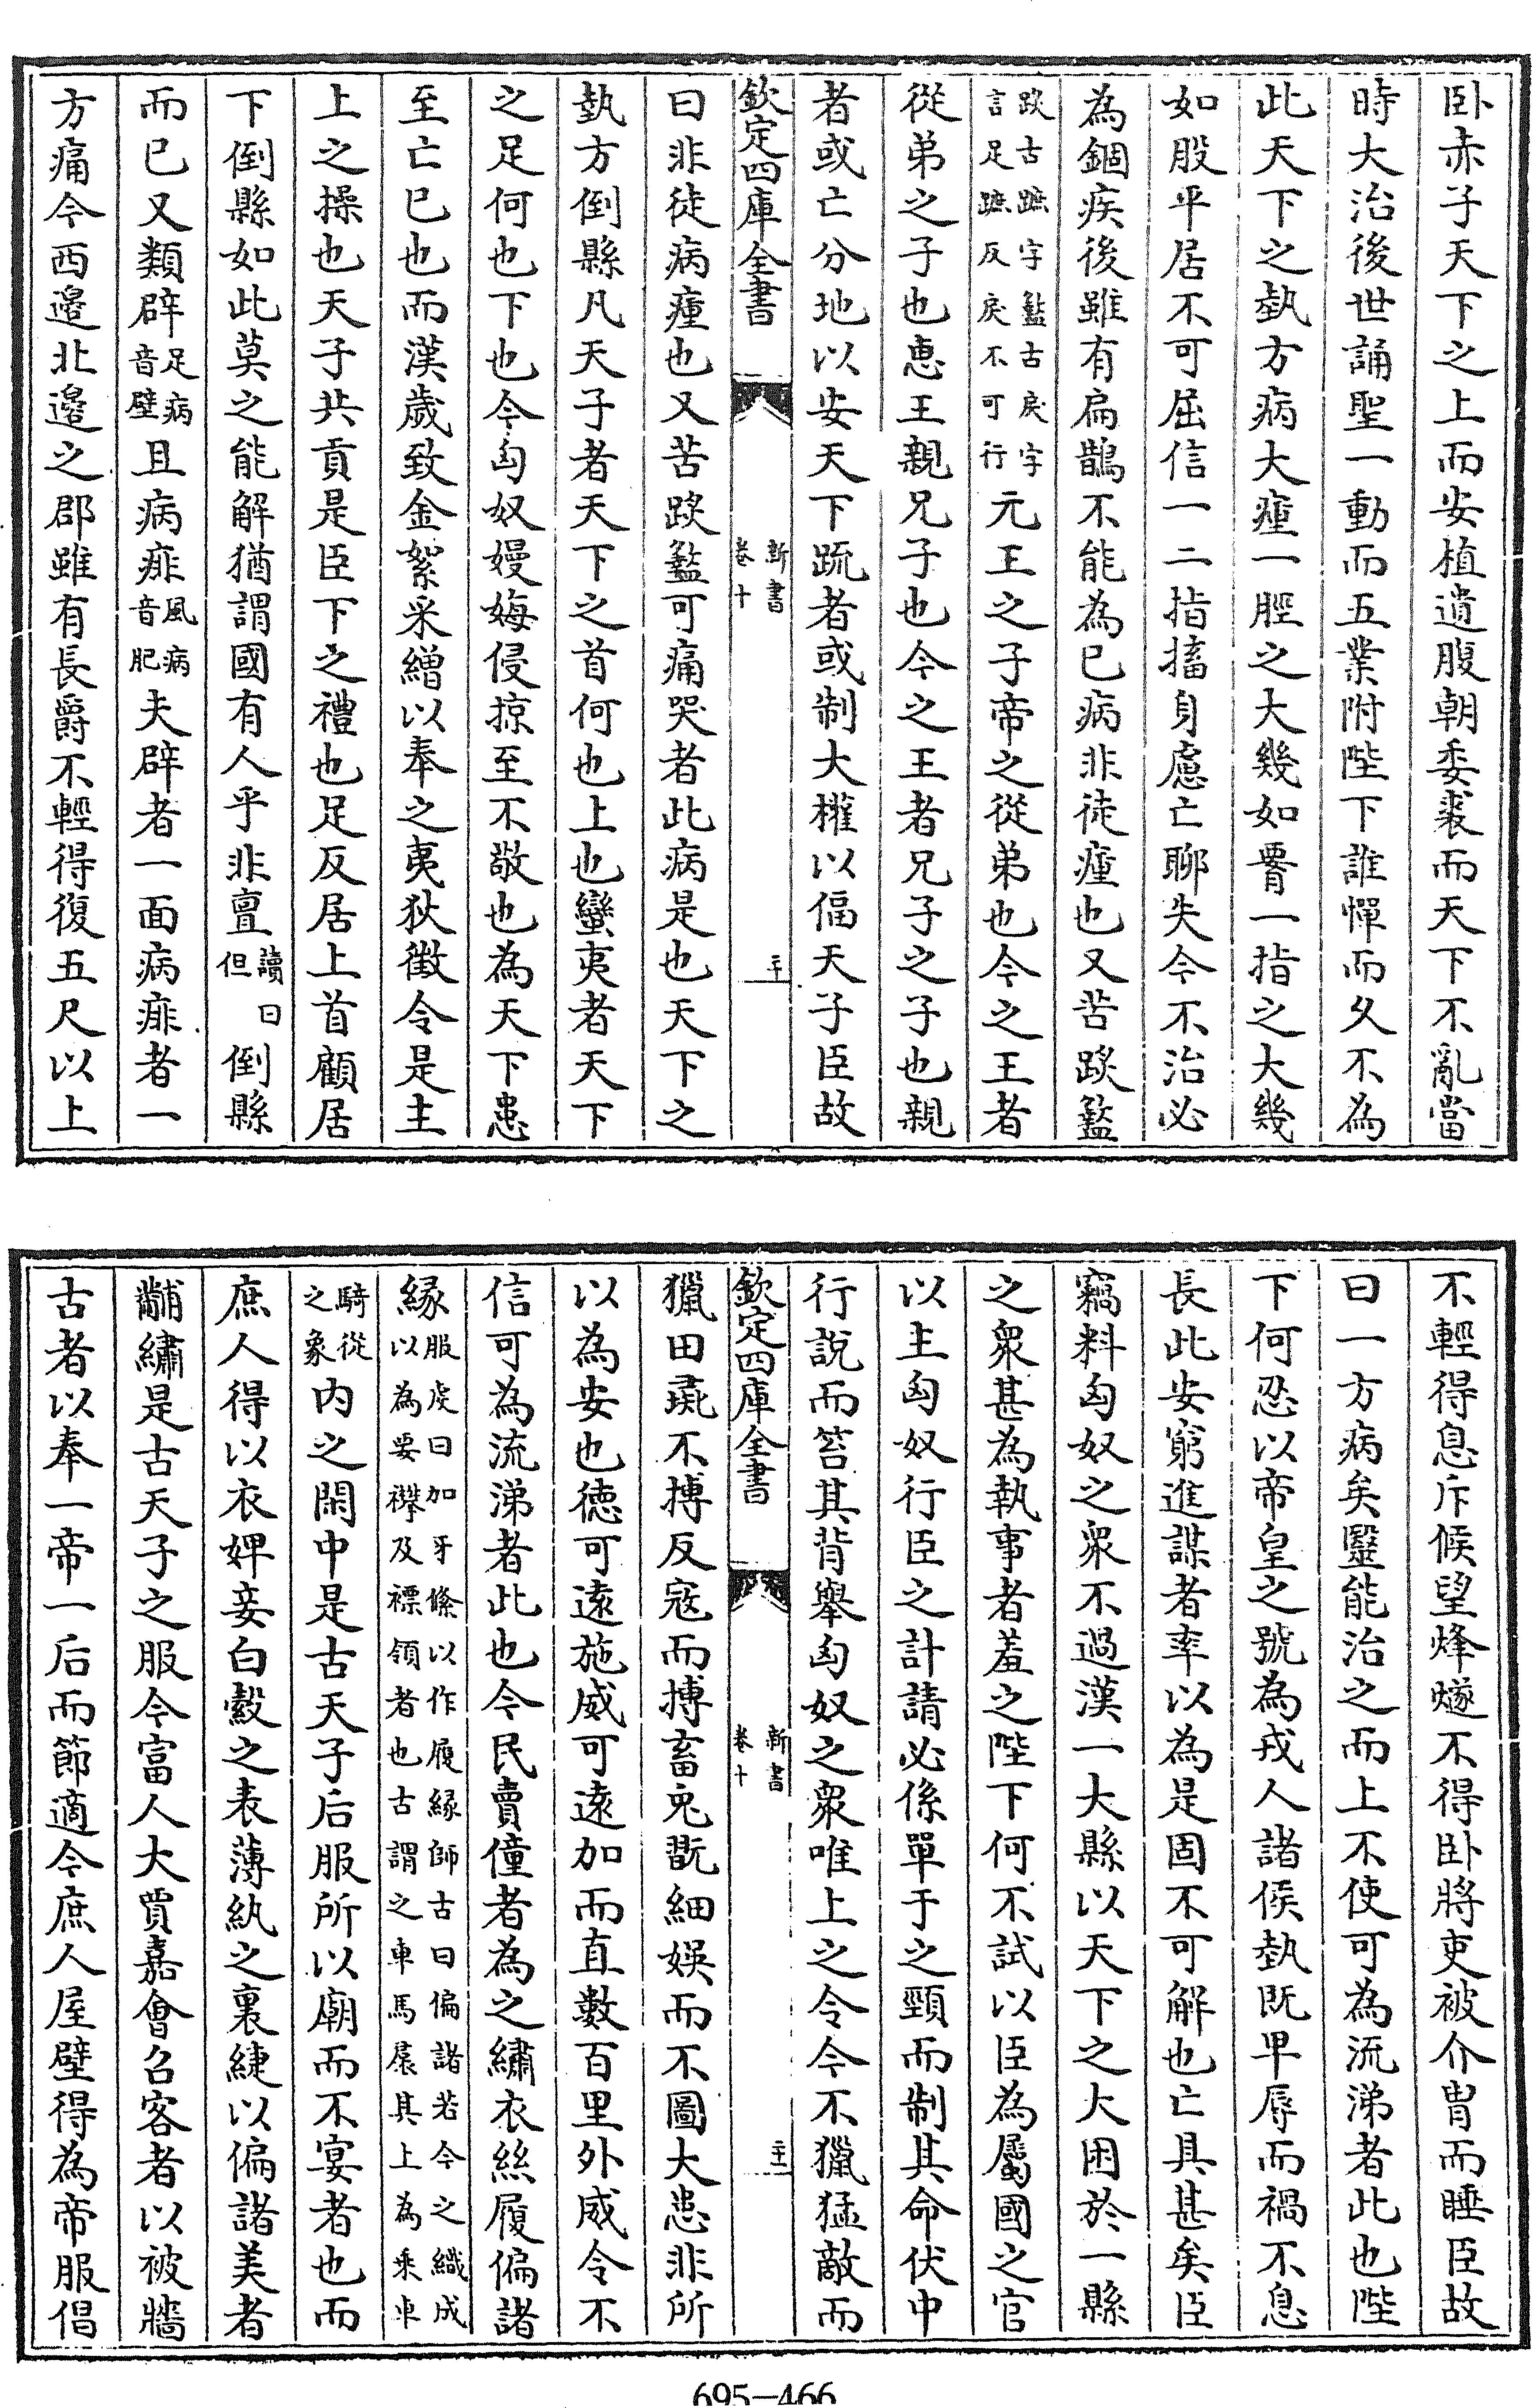 卧赤子天下之上而安植遺腹朝委裘而天下不亂當
時大治後世誦聖一動而五業附陛下誰憚而久不為
此天下之埶方病大瘇一脛之大幾如要一指之大幾
如股平居不可屈信一二指搐身慮亡聊失今不治必
為錮疾後雖有扁鵲不能為已病非徒瘇也又苦䟽盭
䟽古蹠字盭古戾字言足蹠反戾不可行元王之子帝之從弟也今之王者
從弟之子也惠王親兄子也今之王者兄子之子也親
者或亡分地以安天下疏者或制大權以偪天子臣故
欽定四庫全書 新書 卷十 二十
曰非徒病瘇也又苦䟽盭可痛哭者此病是也天下之
埶方倒縣凡天子者天下之首何也上也蠻夷者天下
之足何也下也今匈奴嫚娒侵掠至不敬也為天下患
至亡已也而漢歲致金絮采繒以奉之夷狄徵令是主
上之操也天子共貢是臣下之禮也足反居上首顧居
下倒縣如此莫之能解猶謂國有人乎非亶讀曰但倒縣
而已又類辟足病音壁且病痱風病音肥夫辟者一面病痱者一
方痛今西邉北邉之郡雖有長爵不輕得復五尺以上
不輕得息斥候望烽燧不得卧將吏被介胄而睡臣故
曰一方病矣毉能治之而上不使可為流涕者此也陛
下何忍以帝皇之號為戎人諸侯埶既卑辱而禍不息
長此安窮進謀者率以為是固不可解也亡具甚矣臣
竊料匈奴之衆不過漢一大縣以天下之大困於一縣
之衆甚為執事者羞之陛下何不試以臣為屬國之官
以主匈奴行臣之計請必係單于之頸而制其命伏中
行說而笞其背舉匈奴之衆唯上之令今不獵猛敵而
欽定四庫全書 新書 卷十 二十一
獵田彘不搏反寇而搏畜兎翫細娛而不圖大患非所
以為安也德可遠施威可遠加而直數百里外威令不
信可為流涕者此也今民賣僮者為之繡衣絲履偏諸
緣服虔曰加牙絛以作履緣師古曰偏諸若今之織成以為要襻及褾領者也古謂之車馬裠其上為乘車
騎從之象内之閑中是古天子后服所以廟而不宴者也而
庶人得以衣婢妾白縠之表薄紈之裏緁以偏諸美者
黼繡是古天子之服今富人大賈嘉會召客者以被牆
古者以奉一帝一后而節適今庶人屋壁得為帝服倡
695-466